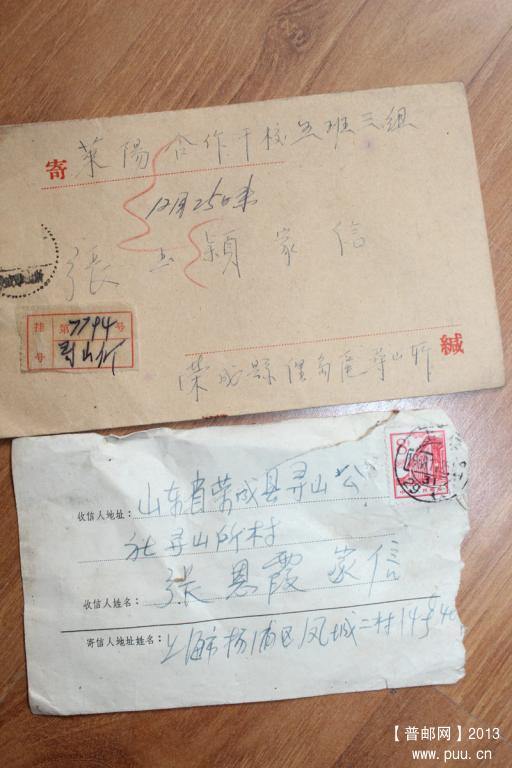 寄 萊陽合作干校五班三組
12月25日来
張玉穎家信
挂号 第7794号
寻山所
荣成縣俚岛區尋山所 緘
8
收信人地址: 山东省荣成县寻山公
社寻山所村
收信人姓名: 张恩霞家信
寄信人地址姓名: 上海市杨浦区凤城二村14号
【普邮网】2013
www.puu.cn